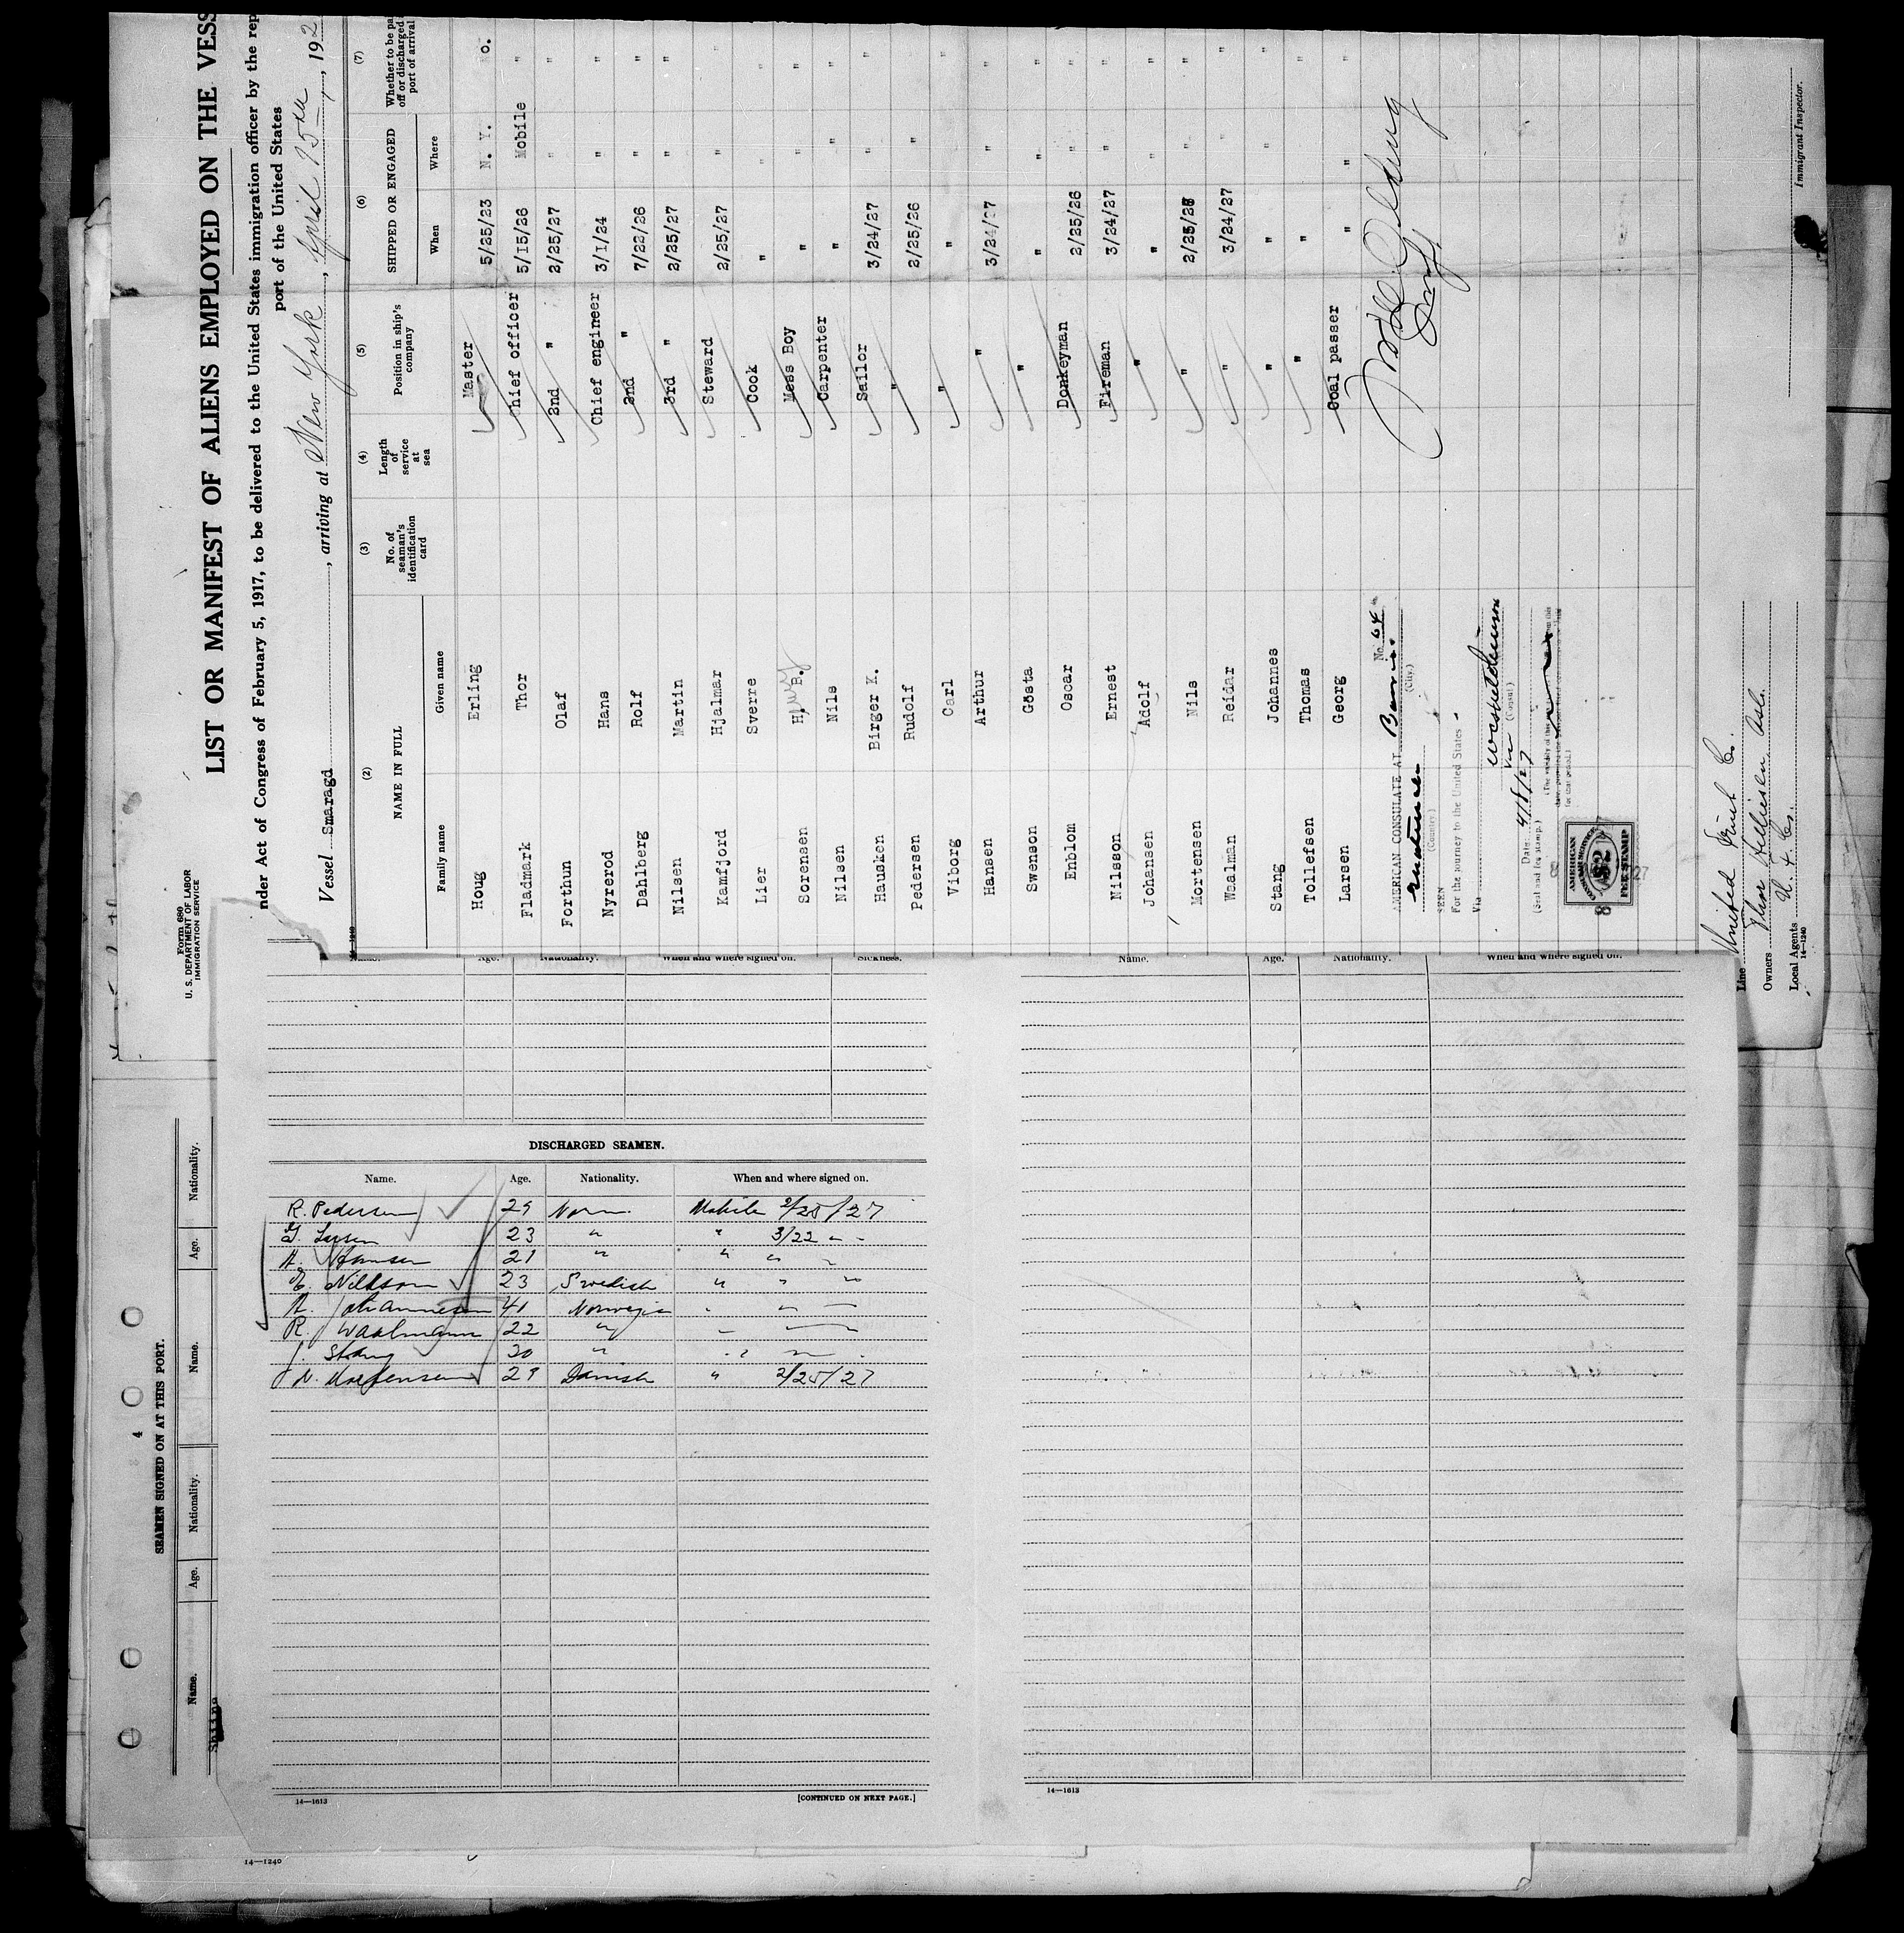 Form 680
U. S. DEPARTMENT OF LABOR
IMMIGRATION SERVICE
LIST OR MANIFEST OF ALIENS EMPLOYED ON THE VESS
nder Act of Congress of February 5, 1917, to be delivered to the United States immigration officer by the rep
port of the United States
Vessel Smaragd, arriving at New York, April 15th, 192
(2) (3) (4) (5) (6) (7)
NAME IN FULL No. of seaman's identification card Length of service at sea Position in ship's company SHIPPED OR ENGAGED Whether to be pa off or discharged port of arrival
Family name Given name When Where
Houg Erling Master 5/25/23 N. Y. No.
Fladmark Thor Chief officer 5/15/26 Mobile "
Forthun Olaf 2nd " 2/25/27 " "
Nyrerod Hans Chief engineer 3/1/24 " "
Dahlberg Rolf 2nd " 7/22/26 " "
Nilsen Martin 3rd " 2/25/27 " "
Kamfjord Hjalmar Steward 2/25/27 " "
Lier Sverre Cook " " "
Sorensen H. B. Mess Boy " " "
Nilsen Nils Carpenter " " "
Hausken Birger K. Sailor 3/24/27 " "
Pedersen Rudolf " 2/25/26 " "
Viborg Carl " " "
Hansen Arthur " 3/24/27 " "
Swenson Gösta " " " "
Enblom Oscar Donkeyman 2/25/26 " "
Nilsson Ernest Fireman 3/24/27 " "
Johansen Adolf " " " "
Mortensen Nils " " "
Waalman Reidar " 3/24/27 " "
Stang Johannes " " " "
Tollefsen Thomas " " "
Larsen Georg Coal passer " " "
AMERICAN CONSULATE AT No. 64
(City)
(Country)
SEEN
For the journey to the United States
Via
(Consul)
Date 4/8/27
(Seal and fee stamp.)
AMERICAN
$2
FEE STAMP
Line United Fruit Co.
Owners
Local Agents U. F. Co.
14—1240
Immigrant Inspector.
Age. Nationality. When and where signed on. Sickness.
Name. Age. Nationality. When and where signed on.
DISCHARGED SEAMEN.
Name. Age. Nationality. When and where signed on.
R. Pedersen 29 Norw. Mobile 2/25/27
G. Larsen 23 " " 3/22 " -
A. Hansen 21 " " "
E. Nillsson 23 Swedish " " "
A. Johannesen 41 Norwegia
R. Waalmann 22 "
J. Stang 20 "
N. Mortensen 29 Danish " 2/25/27
14—1613
[CONTINUED ON NEXT PAGE.]
14—1613
4
SEAMEN SIGNED ON AT THIS PORT.
Name. Age. Nationality. Name. Age. Nationality.
14—1240